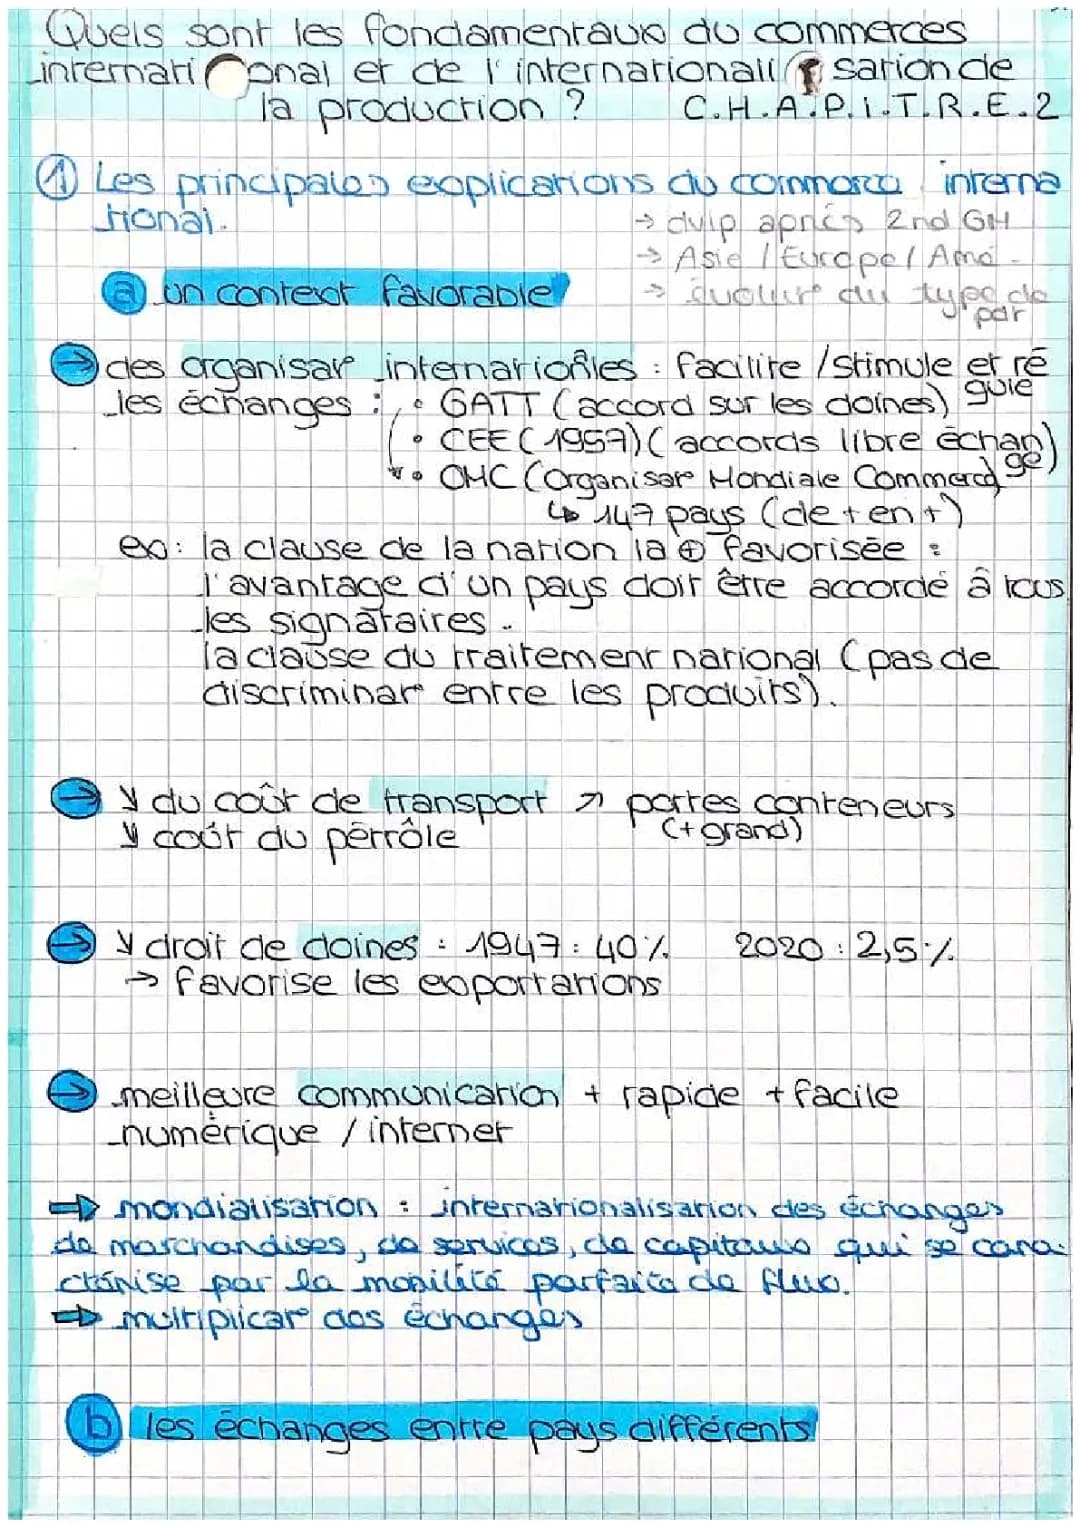 Quels sont les fondamentaux du commerces
internationnal et de l'internationalisation de
la production ? C.H.A.P.i.T.R.E.2
① Les principales explications du commerce interna
tional.
→ dvlp après 2nd GM
→ Asie / Europe / Amé.
→ évolut° du type de
par
ⓐ un context favorable
→ des organisat° internationales : facilite / stimule et ré
gule
les échanges : • GATT (accord sur les doines)
• CEE (1957) (accords libre échan
ge)
• OMC (Organisat° Mondiale Commerce)
↳ 147 pays (de + en +)
ex : la clause de la nation la ⊕ favorisée :
l'avantage d'un pays doit être accordé à tous
les signataires.
la clause du traitement national (pas de
discriminat° entre les produits).
→ ↘ du coût de transport ↗ portes conteneurs
(+ grand)
↘ coût du pétrôle
→ ↘ droit de doines : 1947 : 40% 2020 : 2,5%
→ favorise les exportations
→ meilleure communication + rapide + facile
numérique / internet
⇒ mondialisation : internationalisation des échanges
de marchandises, de services, de capitaux qui se cara-
ctérise par la mobilité parfaite de flux.
⇒ multiplicat° des échanges
ⓑ les échanges entre pays différents